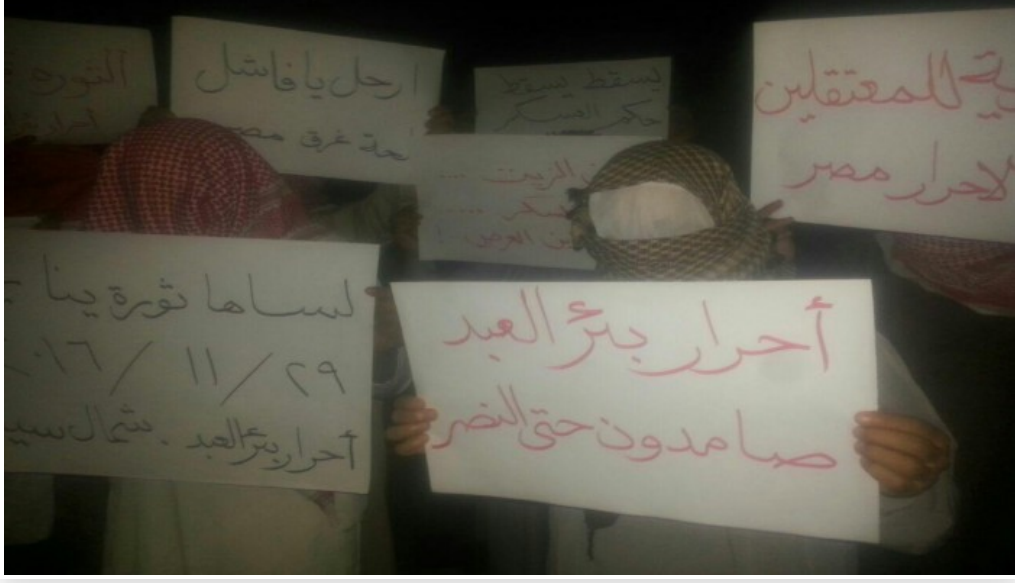 الثورة
أحرار
ارحل يا فاشل
غرق مصر
يسقط يسقط
حكم العسكر
الزيت ....
ية للمعتقلين
لاحرار مصر
لساها ثورة ينا
٢٩ / ١١ / ٢٠١٦
أحرار بئر العبد . شمال سي
أحرار بئر العبد
صامدون حتى النصر